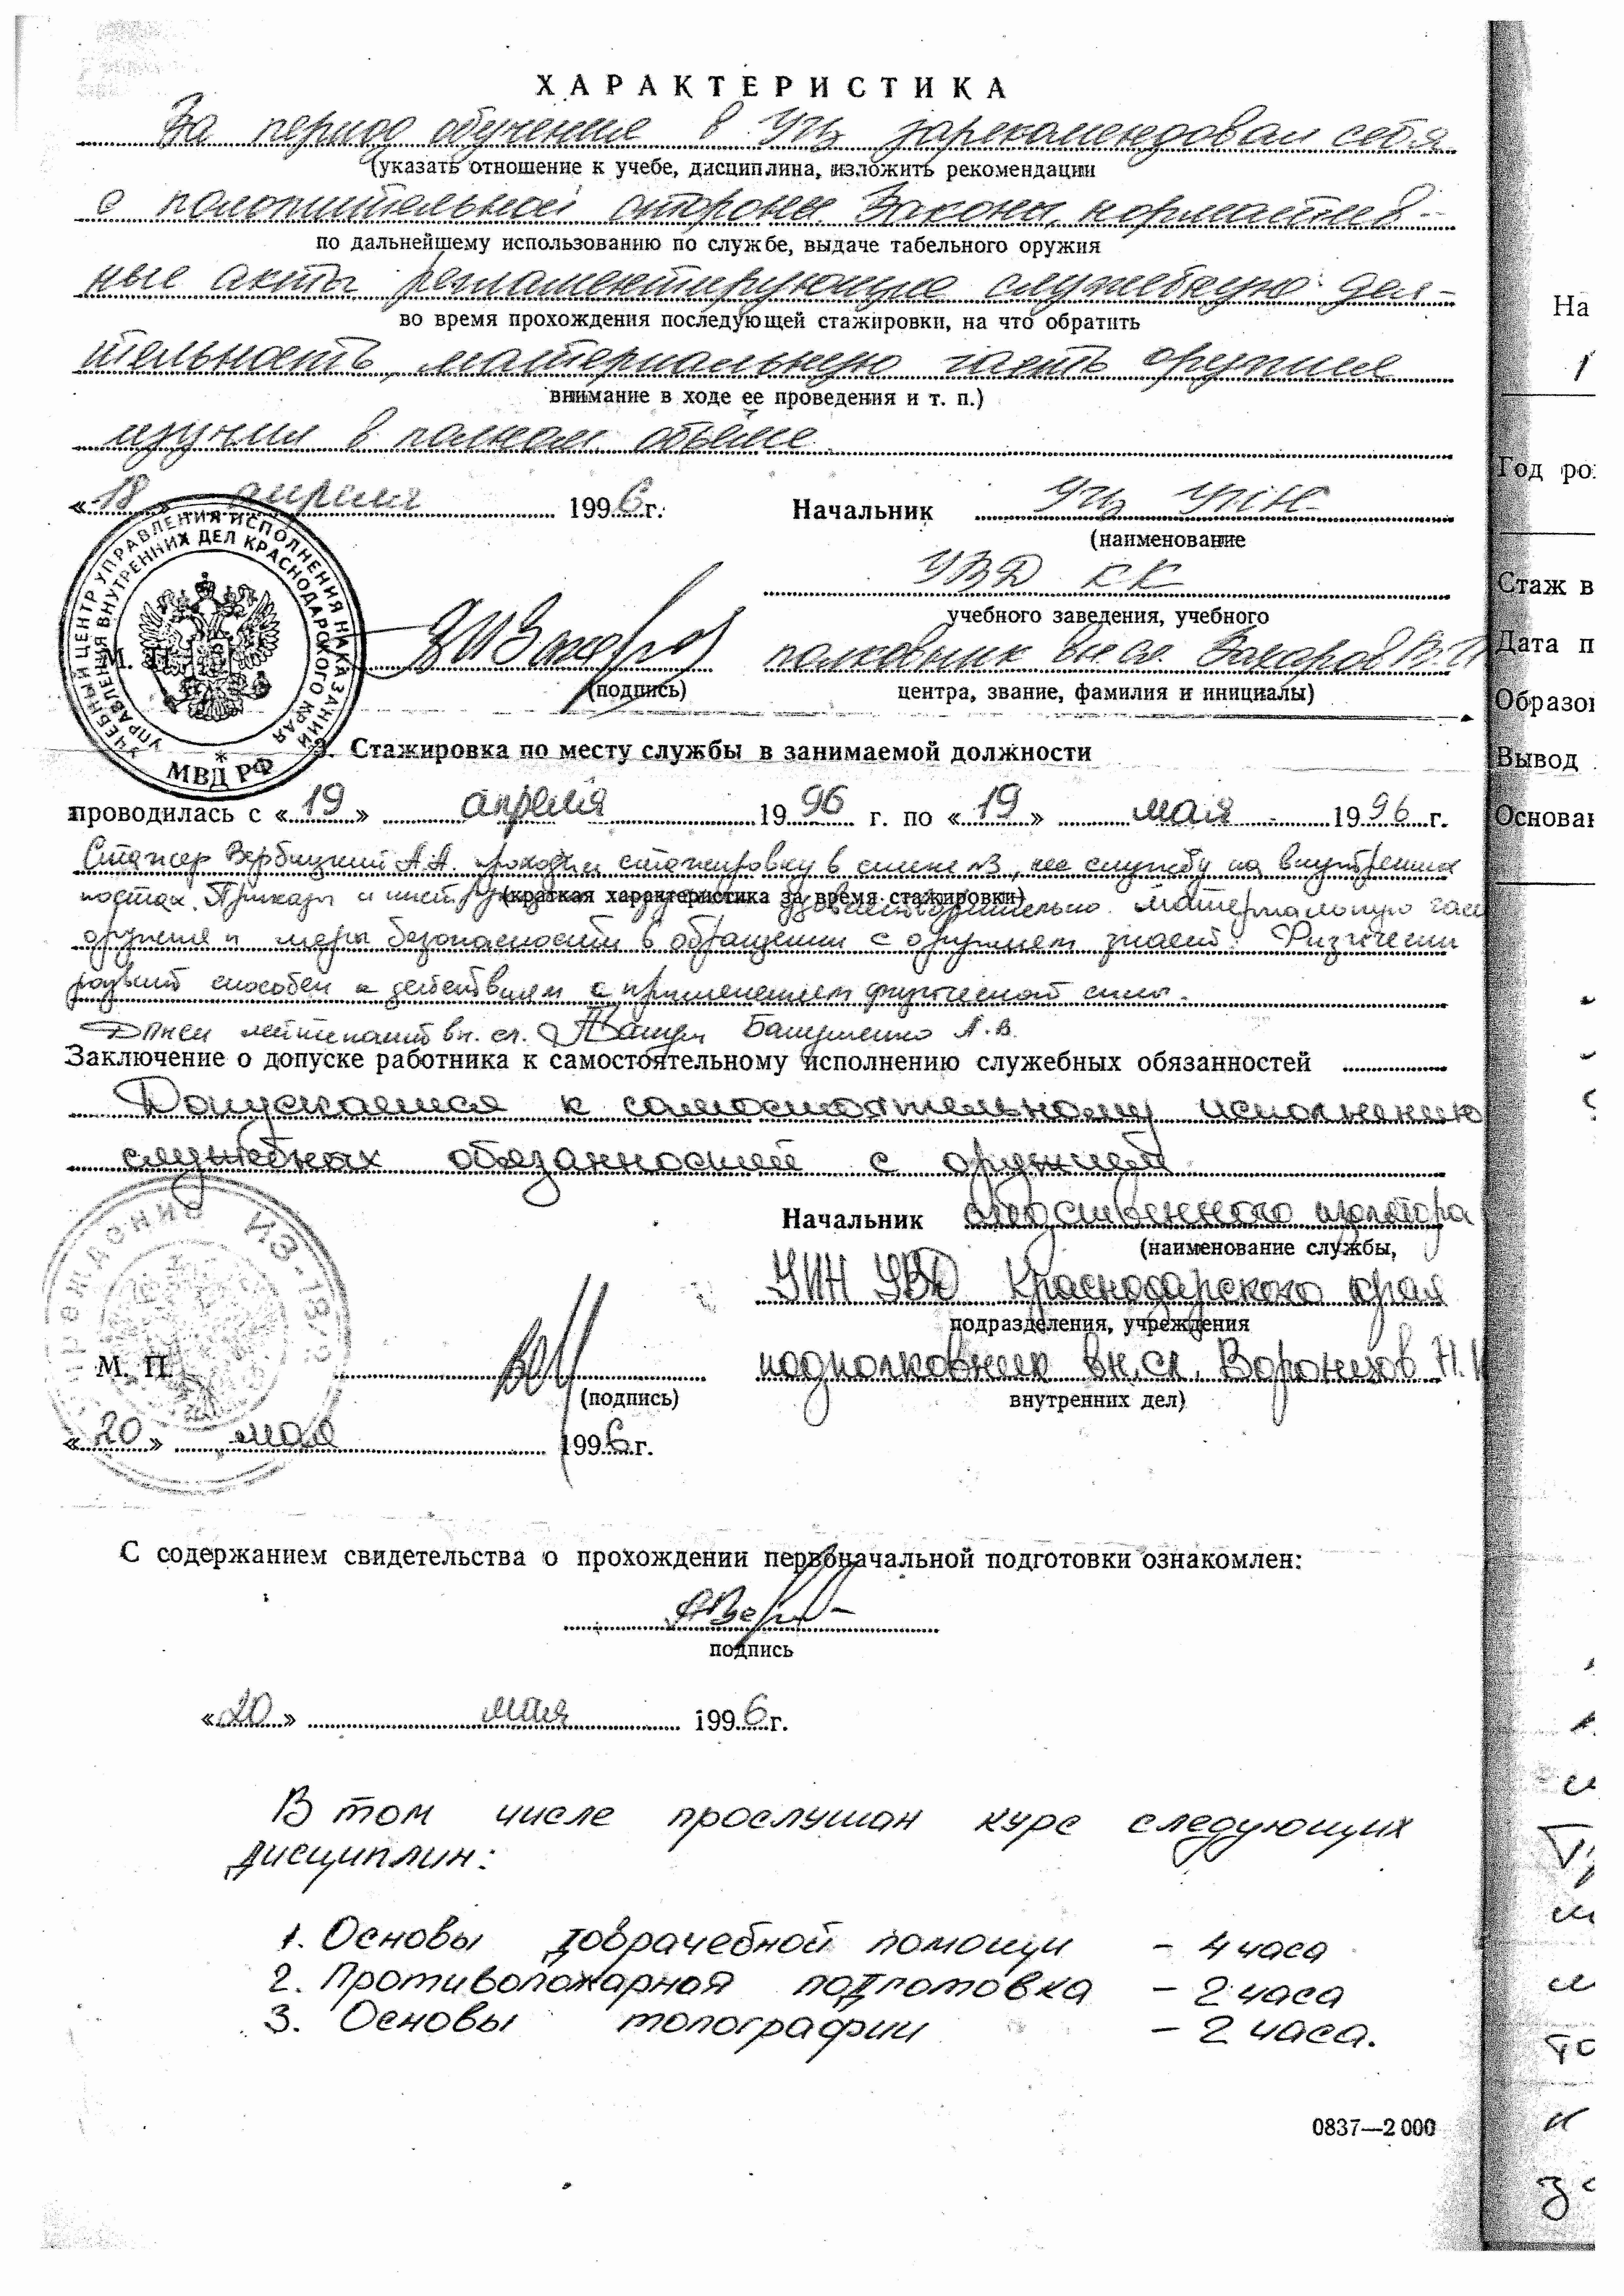 ХАРАКТЕРИСТИКА
За период обучение в УЦ зарекомендовал себя
(указать отношение к учебе, дисциплина, изложить рекомендации
с положительной стороны. Законы, норматив-
по дальнейшему использованию по службе, выдаче табельного оружия
ные акты регламентирующие служебную дея-
во время прохождения последующей стажировки, на что обратить
тельность, материальную часть оружия
внимание в ходе ее проведения и т. п.)
изучил в полном объеме.
«18» апреля 1996 г. Начальник УЦ УИН
(наименование
УВД КК
учебного заведения, учебного
полковник вн.сл. Захаров В.И
(подпись) центра, звание, фамилия и инициалы)
М. П.
УЧЕБНЫЙ ЦЕНТР УПРАВЛЕНИЯ ИСПОЛНЕНИЯ НАКАЗАНИЙ
УПРАВЛЕНИЯ ВНУТРЕННИХ ДЕЛ КРАСНОДАРСКОГО КРАЯ
* МВД РФ
3. Стажировка по месту службы в занимаемой должности
проводилась с «19» апреля 1996 г. по «19» мая 1996 г.
Стажер Вербицкий А.А. проходил стажировку в смене №3, нес службу на внутренних
постах. Приказы и удовлетворительно. Материальную част
(краткая характеристика за время стажировки)
оружия и меры безопасности в обращении с оружием знает. Физически
развит способен к действиям с применением физической силы.
лейтенант вн. сл. А.В.
Заключение о допуске работника к самостоятельному исполнению служебных обязанностей
Допускается к самостоятельному исполнению
служебных обязанностей с оружием
Начальник следственного изолятора
(наименование службы,
УИН УВД Краснодарского края
подразделения, учреждения
подполковник вн.сл. Н.И
М. П. (подпись) внутренних дел)
«20» мая 1996 г.
С содержанием свидетельства о прохождении первоначальной подготовки ознакомлен:
подпись
«20» мая 1996 г.
В том числе прослушан курс следующих
дисциплин:
1. Основы доврачебной помощи - 4 часа
2. Противопожарная подготовка - 2 часа
3. Основы топографии - 2 часа.
0837—2 000
На
Год ро
Стаж в
Дата п
Образо
Вывод
Основа